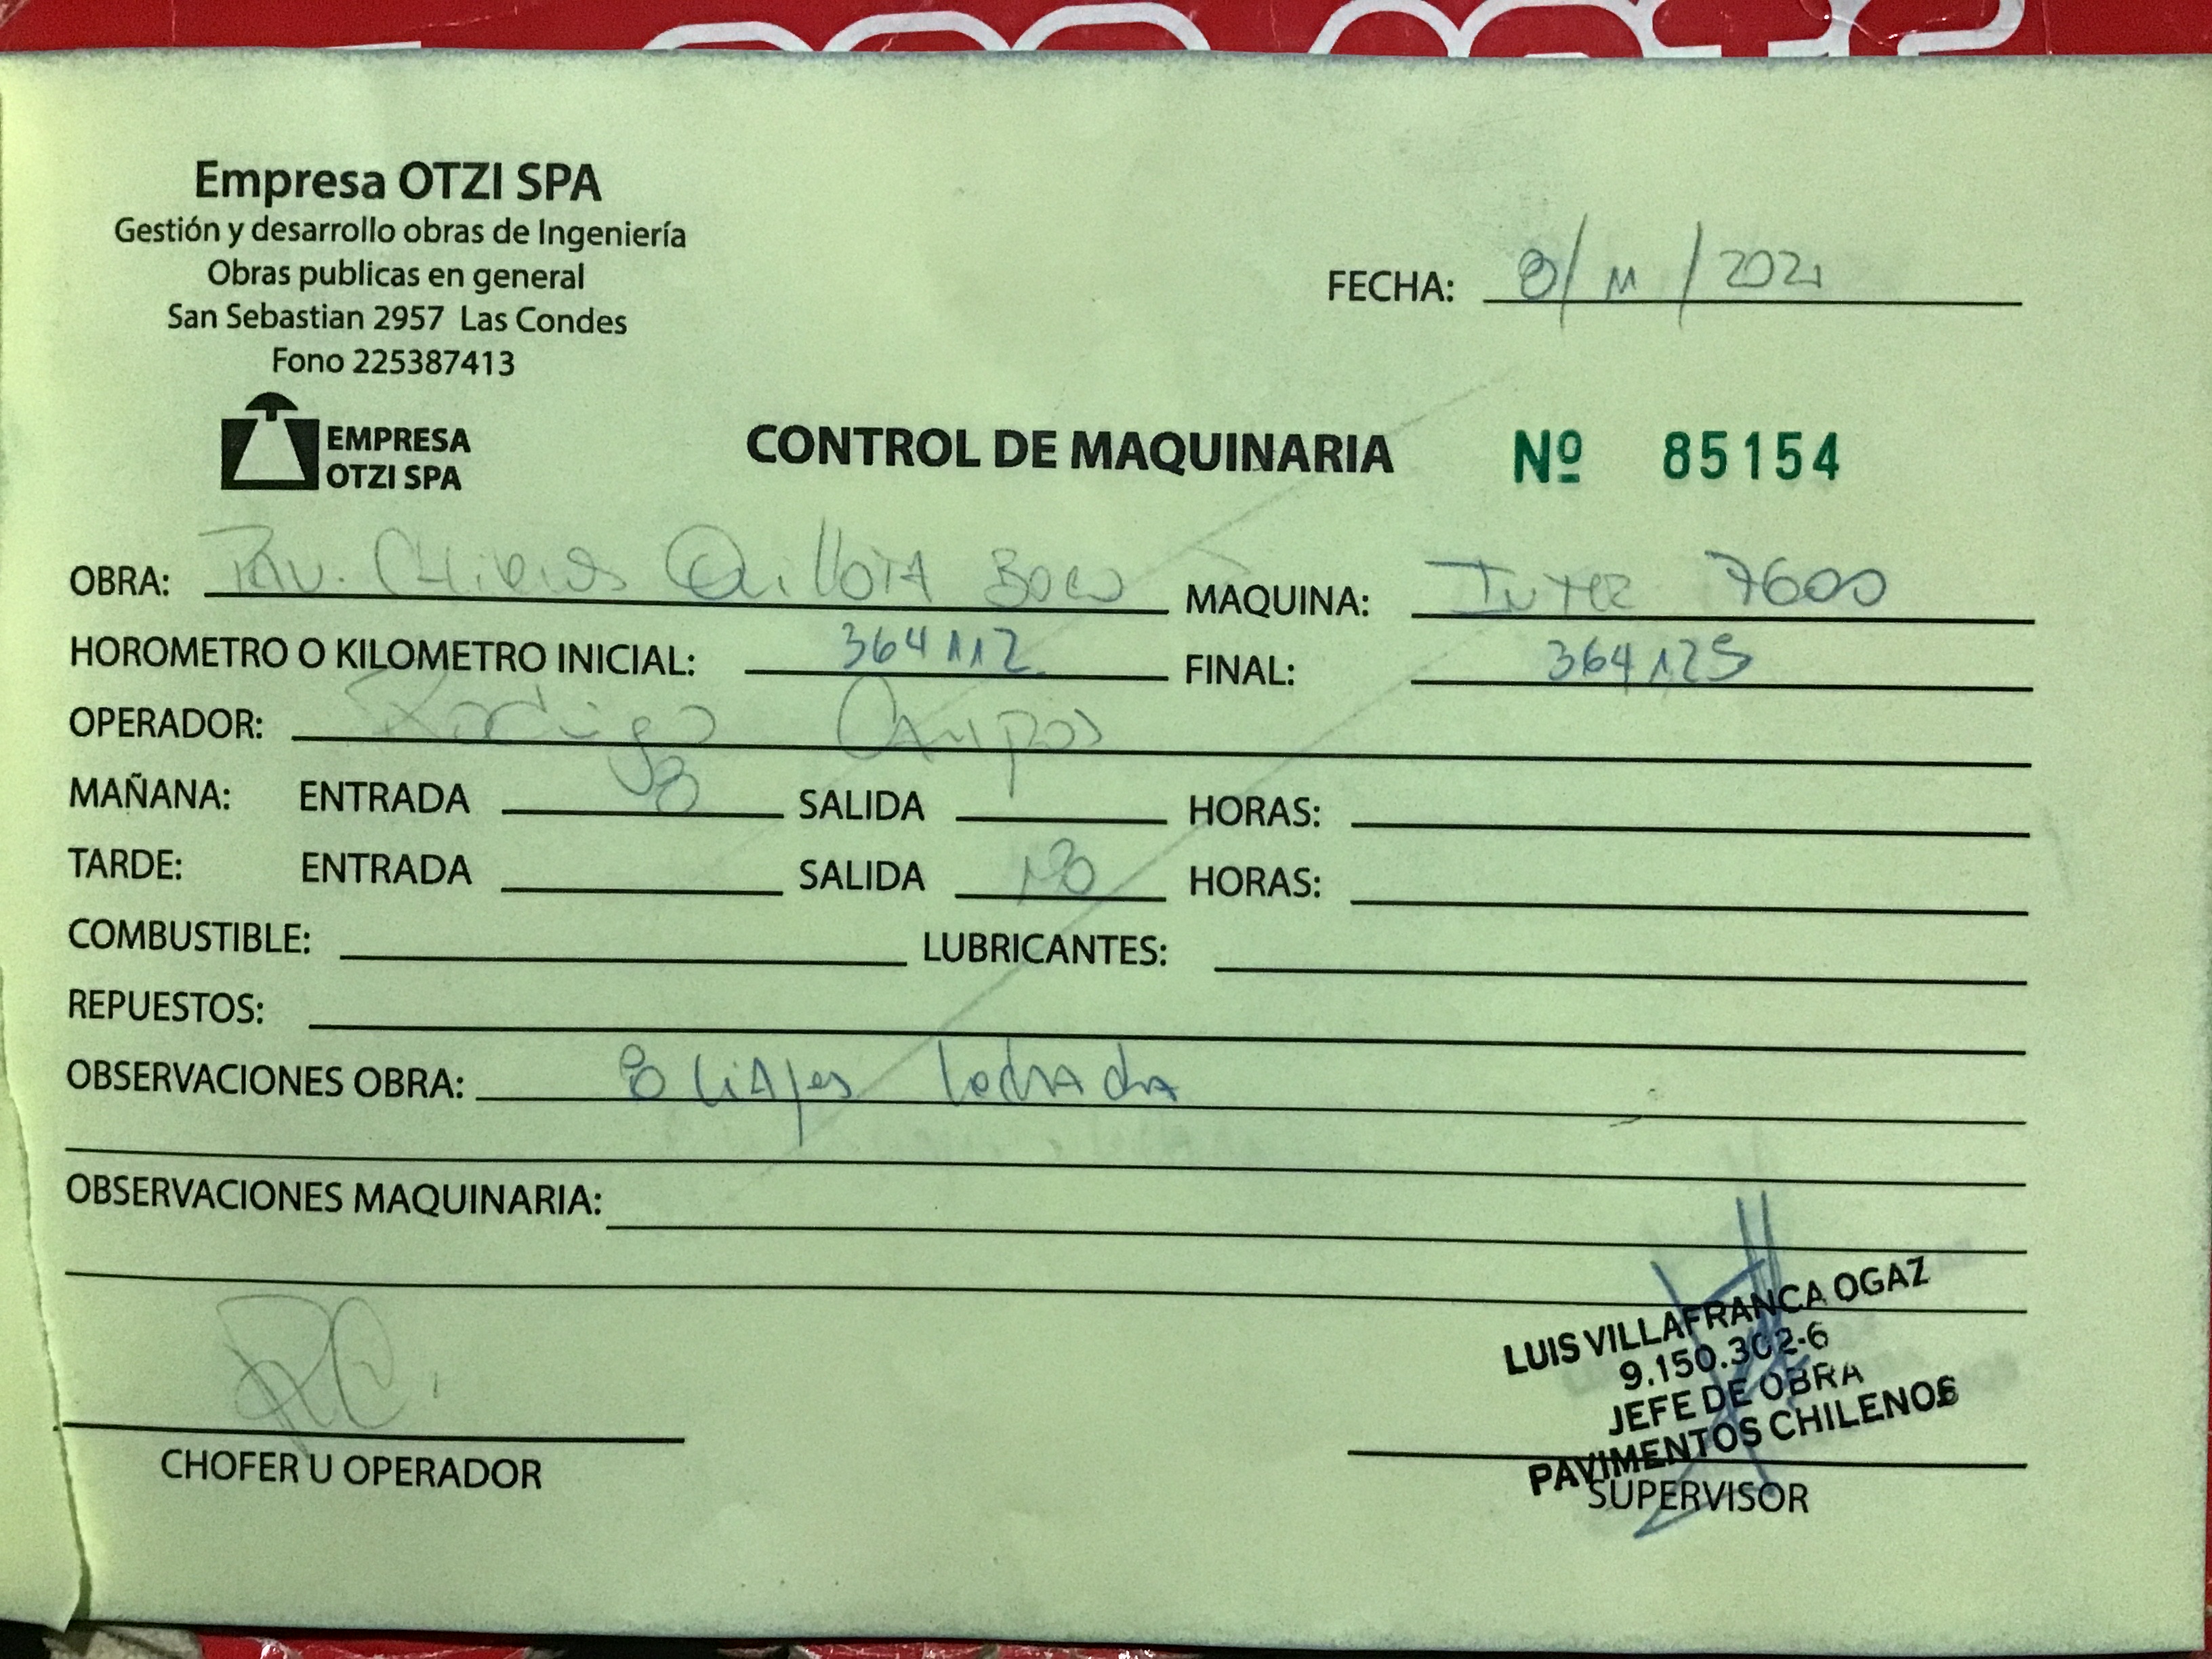 Empresa OTZI SPA
Gestión y desarrollo obras de Ingeniería
Obras publicas en general
San Sebastian 2957 Las Condes
Fono 225387413
FECHA: 8/11/2021
EMPRESA
OTZI SPA
CONTROL DE MAQUINARIA Nº 85154
OBRA: Pav. Chilenos MAQUINA: Inter 7600
HOROMETRO O KILOMETRO INICIAL: 364112 FINAL: 364125
OPERADOR: Rodrigo Campos
MAÑANA: ENTRADA 08 SALIDA HORAS:
TARDE: ENTRADA SALIDA 18 HORAS:
COMBUSTIBLE: LUBRICANTES:
REPUESTOS:
OBSERVACIONES OBRA: 8 Viajes
OBSERVACIONES MAQUINARIA:
LUIS VILLAFRANCA OGAZ
9.150.302-6
JEFE DE OBRA
PAVIMENTOS CHILENOS
CHOFER U OPERADOR SUPERVISOR